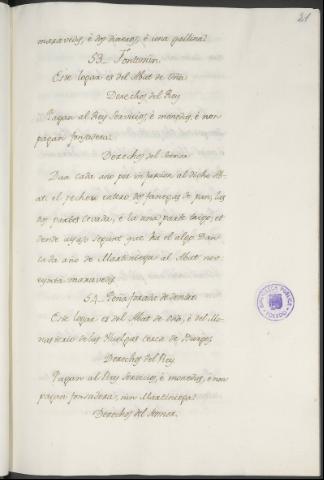 21
maravedis, è dos dineros, è una gallina.
53_ Fontecun
Este Logar es del Abat de Oña
Derechos del Rey
Pagan al Rey Servicios, è monedas, è non
pagan fonsadera.
Derechos del Señor
Dan cada año por infurcion al dicho Ab-
at el pechero entero dos fanegas de pan, las
dos partes cevada, è la una parte trigo, et
dende ayuso segunt que ha el algo Dan
cada año de Martiniega al Abat
maravedis
54_ Peña forada de
Este Logar es del Abat de Oña, è del Mo-
nasterio de las Huelgas cerca de Burgos
Derechos del Rey
Pagan al Rey Servicios, è monedas, è non
pagan fonsadera, nin Martiniega.
Derechos del Señor.
BIBLIOTECA PUBLICA
TOLEDO